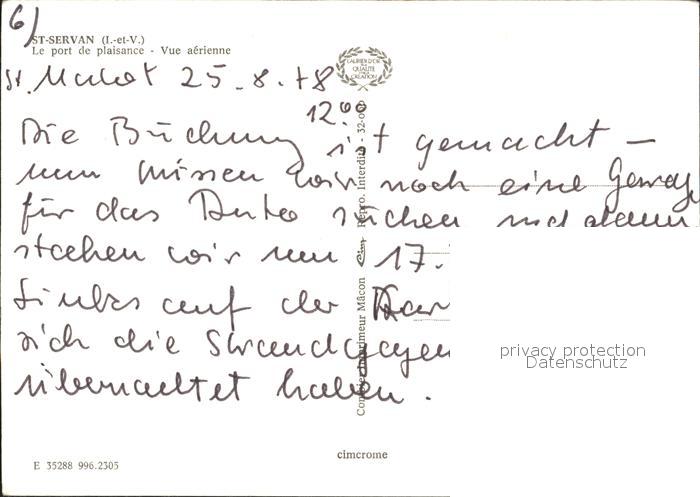 6)
ST-SERVAN (I.-et-V.)
Le port de plaisance - Vue aérienne
CAURIER D'OR
QUALITÉ
CRÉATION
St. Malo 25.8.78
12.00
Die Buchung ist gemacht —
nun müssen wir noch eine Garage
für das Auto suchen und dann
stechen wir um 17.
Links auf der
sich die Strand
übernachtet haben.
Combier Imprimeur Mâcon Repro. Interdite - 32-000
Cim
privacy protection
Datenschutz
cimcrome
E 35288 996.2305